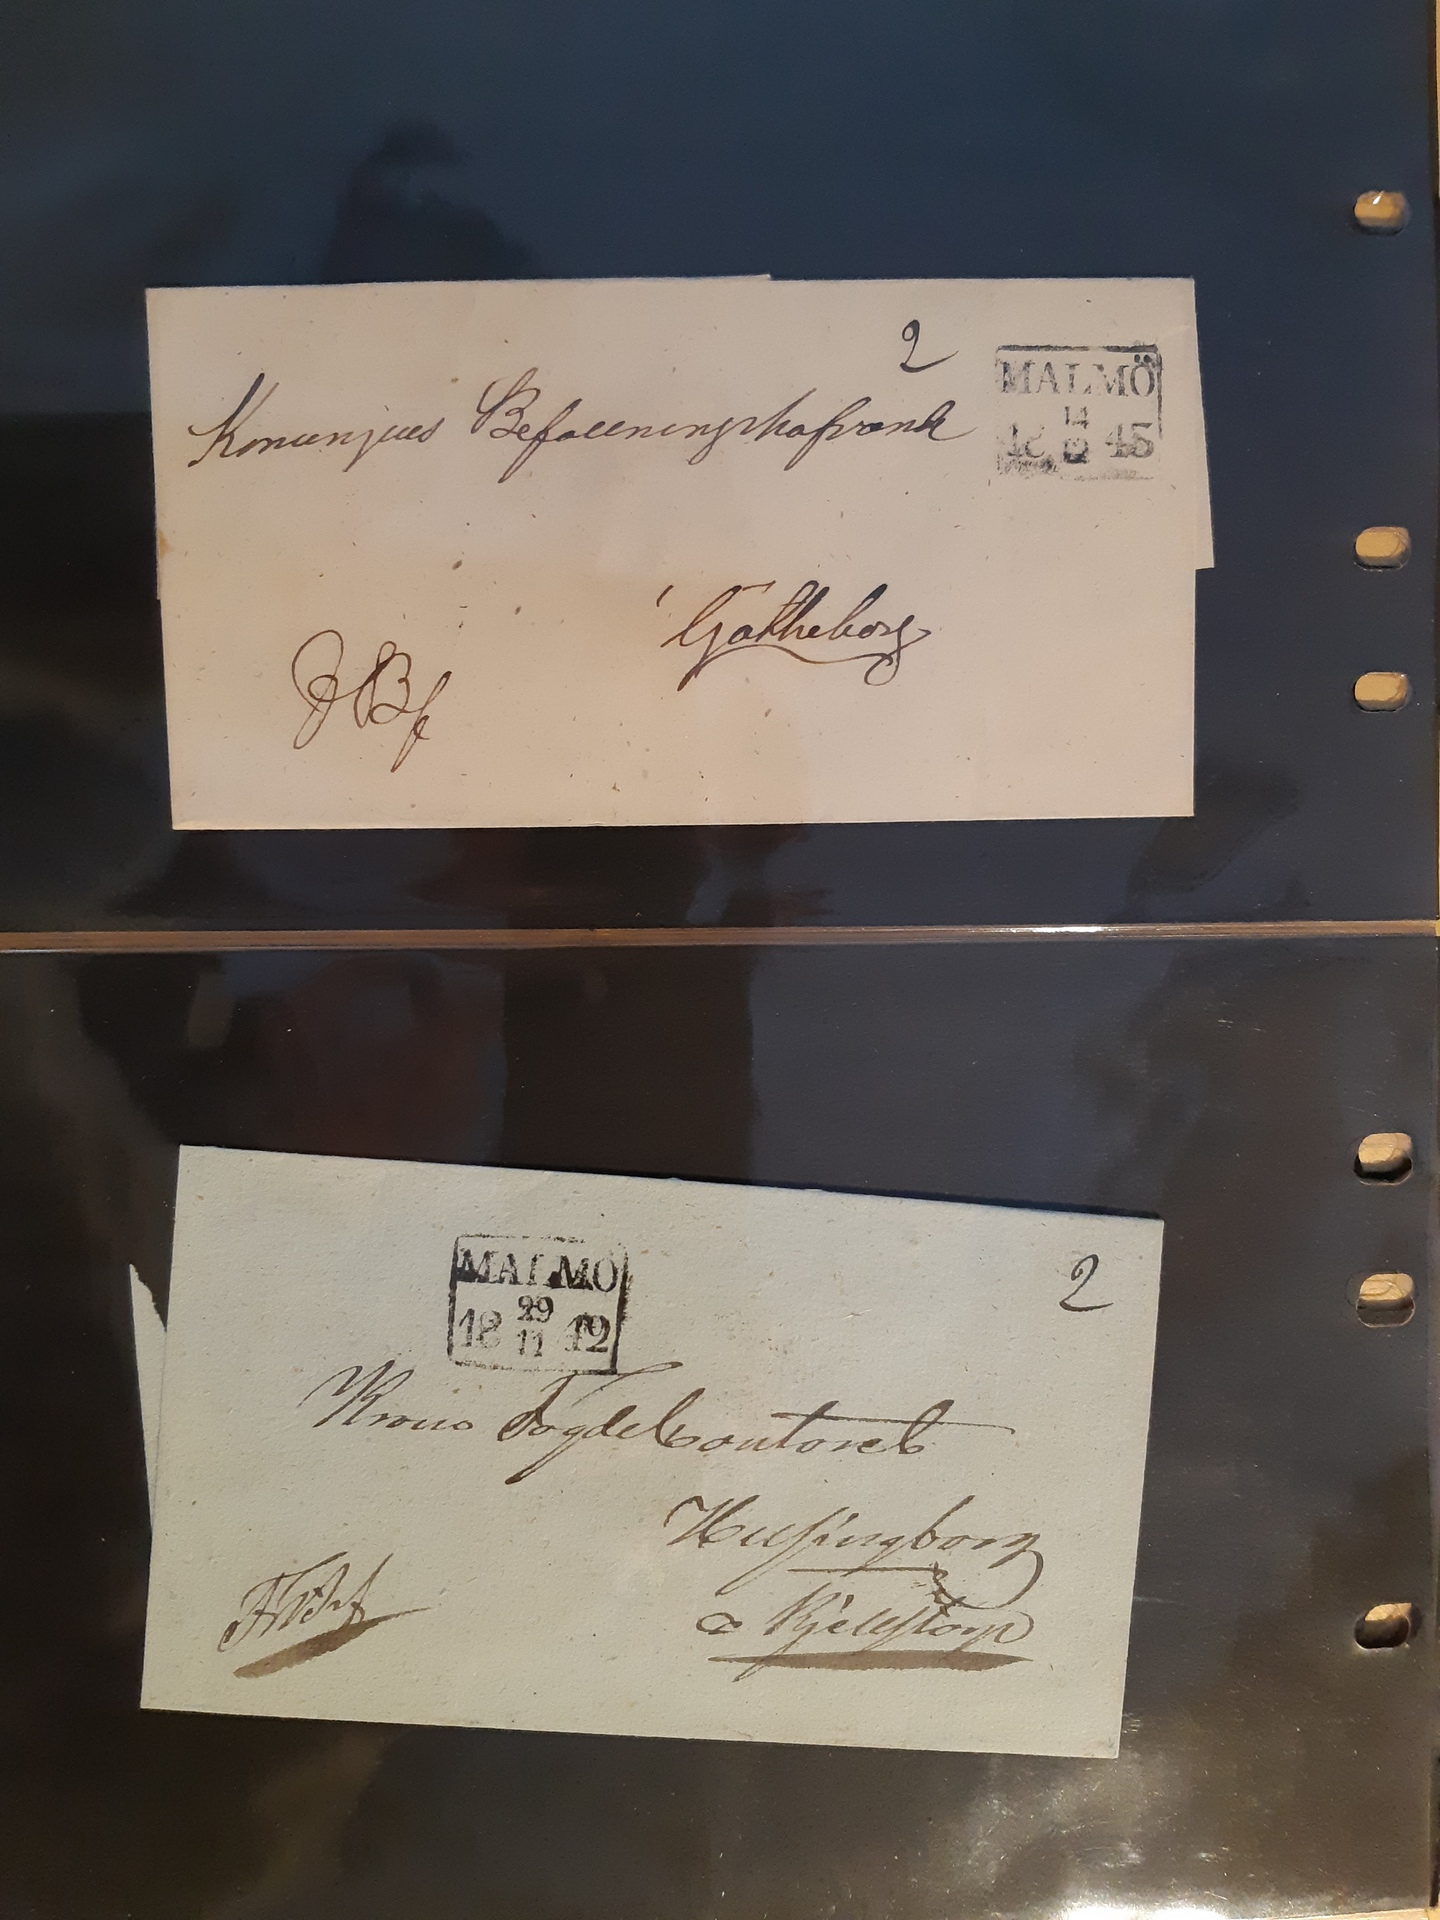 2
MALMÖ
14
18 12 45
Konunjens Befallningshafvande
i Götheborg
2
MALMÖ
29
18 11 42
Krono Fogde Contoret
Helsingborg
Kjellstorp